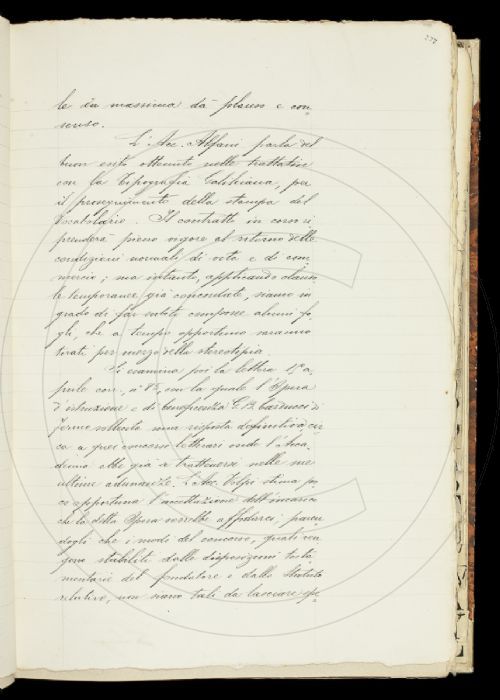 le in massima dà plauso e con=
senso.
L'Acc. Alfani parla del
buon esito ottenuto nelle trattative
con la Tipografia Galileiana, per
il proseguimento della stampa del
Vocabolario. Il contratto in corso ri=
prenderà pieno vigore al ritorno delle
condizioni normali di vita e di com=
mercio; ma intanto, applicando clauso=
le temporanee già concordate, siamo in
grado di far subito comporre alcuni fo=
gli, che a tempo opportuno saranno
tirati per mezzo della stereotipia.
Si esamina poi la lettera 4 a=
prile corr., n° 85, con la quale l'Opera
d'istruzione e di beneficenza G. B. Carducci di
Fermo sollecita una risposta definitiva cir=
ca a quei concorsi letterari onde l'Acca=
demia ebbe già a trattenersi nelle sue
ultime adunanze. L'Acc. Volpi stima po=
co opportuna l'accettazione dell'incarico
che la detta Opera vorrebbe affidarci; paren=
dogli che i modi del concorso, quali ven=
gono stabiliti dalle disposizioni testa=
mentarie del fondatore e dallo Statuto
relativo, non siano tali da lasciare spe=